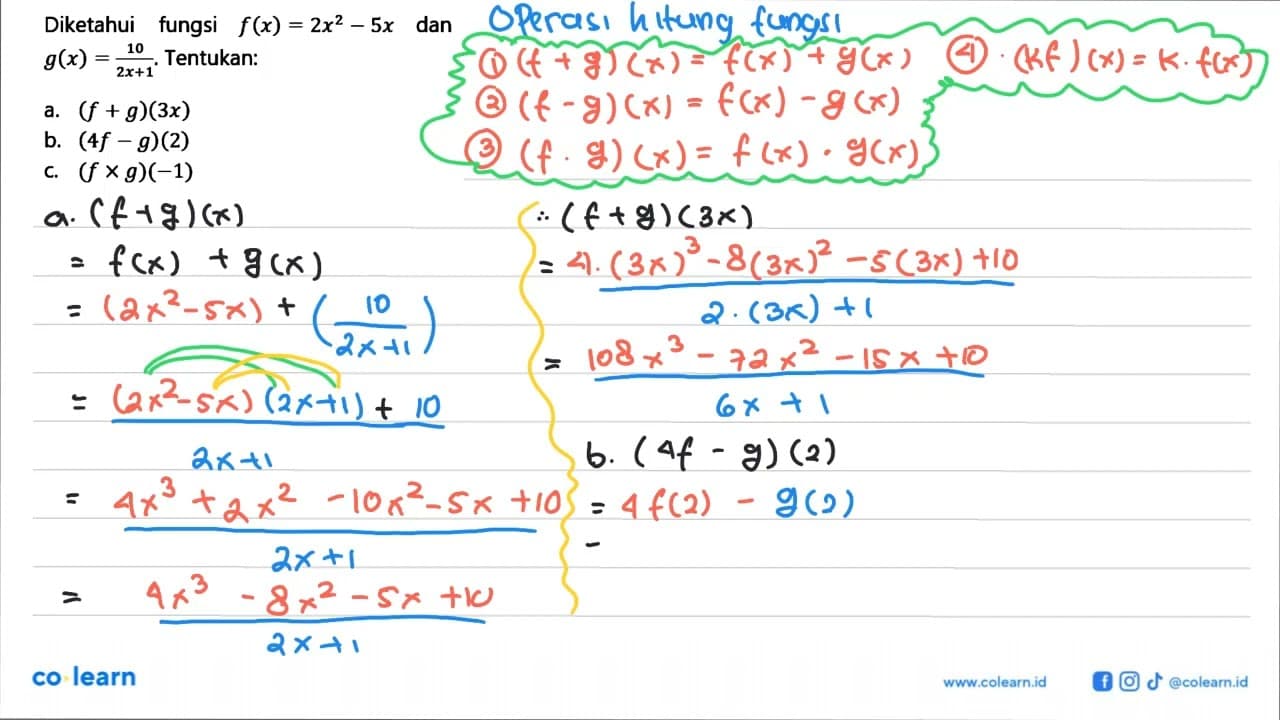 Diketahui fungsi f(x) = 2x² − 5x dan
g(x) = 10/(2x+1). Tentukan:
a. (f + g)(3x)
b. (4f − g)(2)
c. (f × g)(−1)
Operasi hitung fungsi
① (f + g)(x) = f(x) + g(x)
④ · (kf)(x) = k · f(x)
② (f - g)(x) = f(x) - g(x)
③ (f · g)(x) = f(x) · g(x)
a. (f + g)(x)
= f(x) + g(x)
= (2x² - 5x) + (10/(2x+1))
= ((2x² - 5x)(2x+1) + 10)/(2x+1)
= (4x³ + 2x² - 10x² - 5x + 10)/(2x+1)
= (4x³ - 8x² - 5x + 10)/(2x+1)
∴ (f + g)(3x)
= (4·(3x)³ - 8(3x)² - 5(3x) + 10)/(2·(3x) + 1)
= (108x³ - 72x² - 15x + 10)/(6x + 1)
b. (4f - g)(2)
= 4f(2) - g(2)
-
co·learn
www.colearn.id
@colearn.id